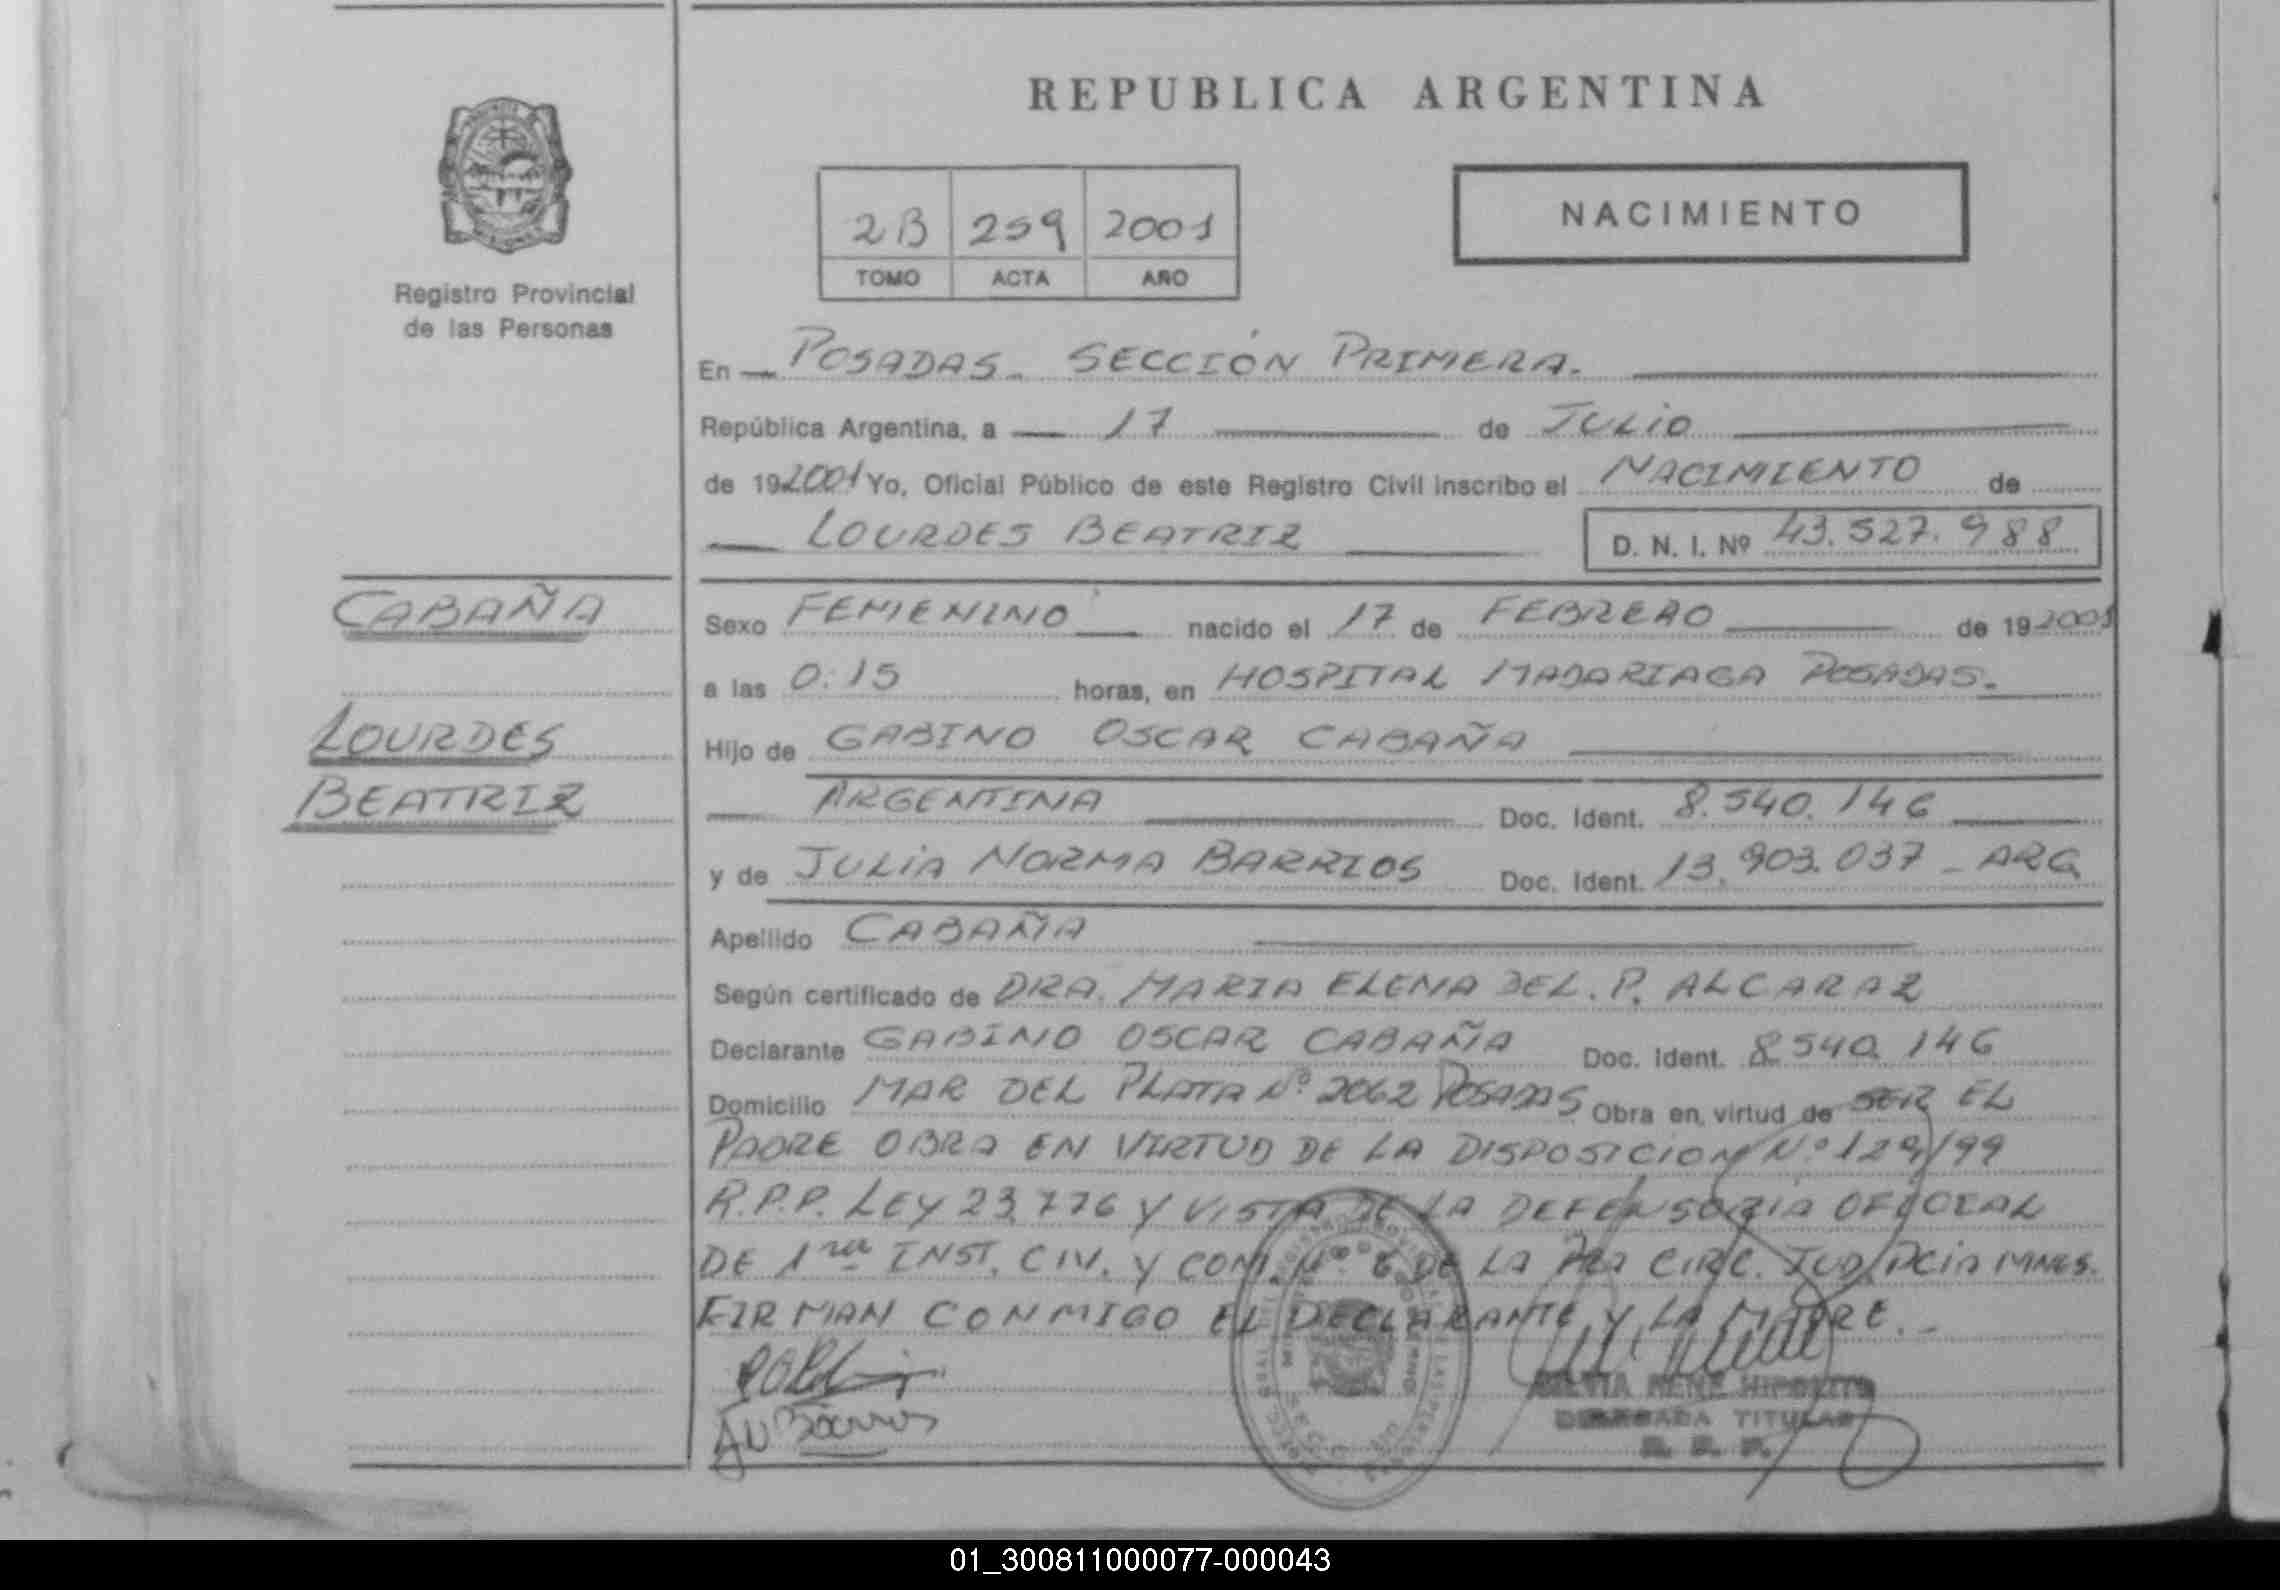 REPUBLICA ARGENTINA
2B 259 2001
TOMO ACTA AÑO
NACIMIENTO
Registro Provincial
de las Personas
En POSADAS. SECCIÓN PRIMERA.
República Argentina, a 17 de JULIO
de 192001 Yo, Oficial Público de este Registro Civil inscribo el NACIMIENTO de
LOURDES BEATRIZ D. N. I. Nº 43.527.988
CABAÑA
LOURDES
BEATRIZ
Sexo FEMENINO nacido el 17 de FEBRERO de 192001
a las 0:15 horas, en HOSPITAL MADARIAGA POSADAS.
Hijo de GABINO OSCAR CABAÑA
ARGENTINA Doc. Ident. 8.540.146
y de JULIA NORMA BARRIOS Doc. Ident. 13.903.037 - ARG
Apellido CABAÑA
Según certificado de DRA. MARIA ELENA DEL. P. ALCARAZ
Declarante GABINO OSCAR CABAÑA Doc. Ident. 8.540.146
Domicilio MAR DEL PLATA Nº 2062 POSADAS Obra en virtud de SER EL
PADRE OBRA EN VIRTUD DE LA DISPOSICION Nº 129/99
R.P.P. LEY 23.776 Y VISTA DE LA DEFENSORIA OFICIAL
DE 1ra INST. CIV. Y COM. Nº 6 DE LA CIRC. JUD. PCIA MNES.
FIRMAN CONMIGO EL DECLARANTE Y LA MADRE.
SILVIA RENE HIPOLITO
DELEGADA TITULAR
R. P. P.
01_300811000077-000043